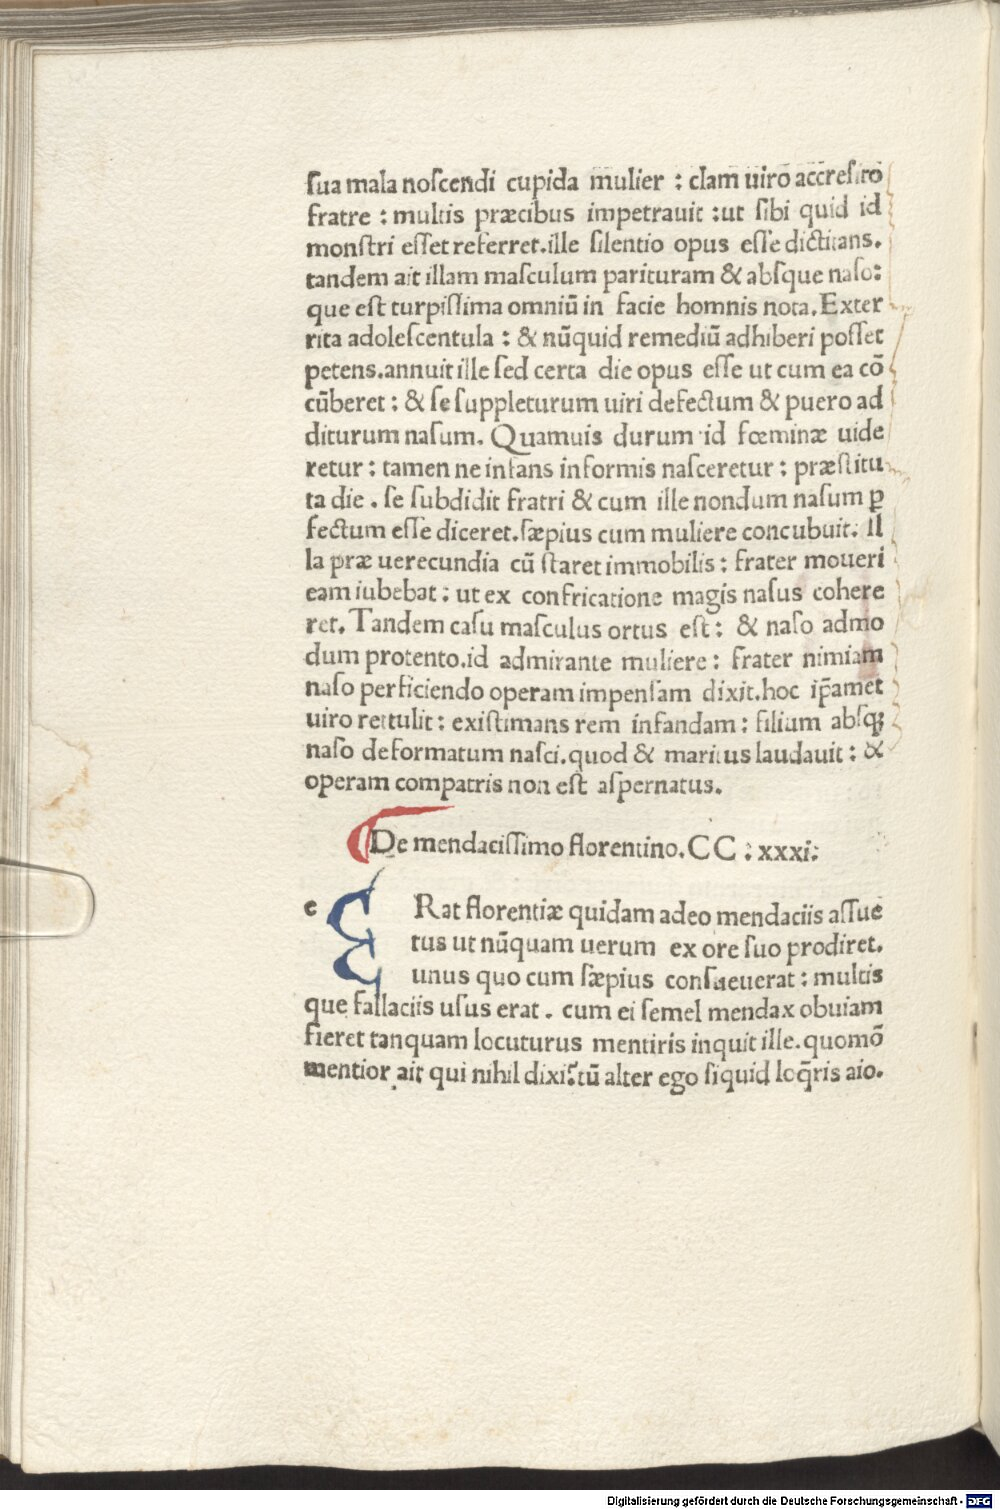 sua mala noscendi cupida mulier : clam uiro accresito
fratre : multis præcibus impetrauit : ut sibi quid id
monstri esset referret. ille silentio opus esse dictitans.
tandem ait illam masculum parituram & absque naso:
que est turpissima omniū in facie homnis nota. Exter
rita adolescentula : & nūquid remediū adhiberi posset
petens. annuit ille sed certa die opus esse ut cum ea cō
cūberet : & se suppleturum uiri defectum & puero ad
diturum nasum. Quamuis durum id fœminæ uide
retur : tamen ne infans informis nasceretur : præstitu
ta die . se subdidit fratri & cum ille nondum nasum ꝑ
fectum esse diceret. sæpius cum muliere concubuit. Il
la præ uerecundia cū staret immobilis : frater moueri
eam iubebat : ut ex confricatione magis nasus cohere
ret. Tandem casu masculus ortus est : & naso admo
dum protento. id admirante muliere : frater nimiam
naso perficiendo operam impensam dixit. hoc ip̄amet
uiro rettulit : existimans rem infandam : filium absqꝫ
naso deformatum nasci. quod & maritus laudauit : &
operam compatris non est aspernatus.
De mendacissimo florentino. CC : xxxi:
e ERat florentiæ quidam adeo mendaciis assue
tus ut nūquam uerum ex ore suo prodiret.
unus quo cum sæpius consueuerat : multis
que fallaciis usus erat . cum ei semel mendax obuiam
fieret tanquam locuturus mentiris inquit ille. quomō
mentior ait qui nihil dixi? tū alter ego siquid loq̄ris aio.
Digitalisierung gefördert durch die Deutsche Forschungsgemeinschaft - DFG